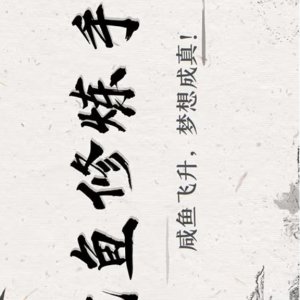 鱼修炼手
咸鱼飞升，梦想成真！